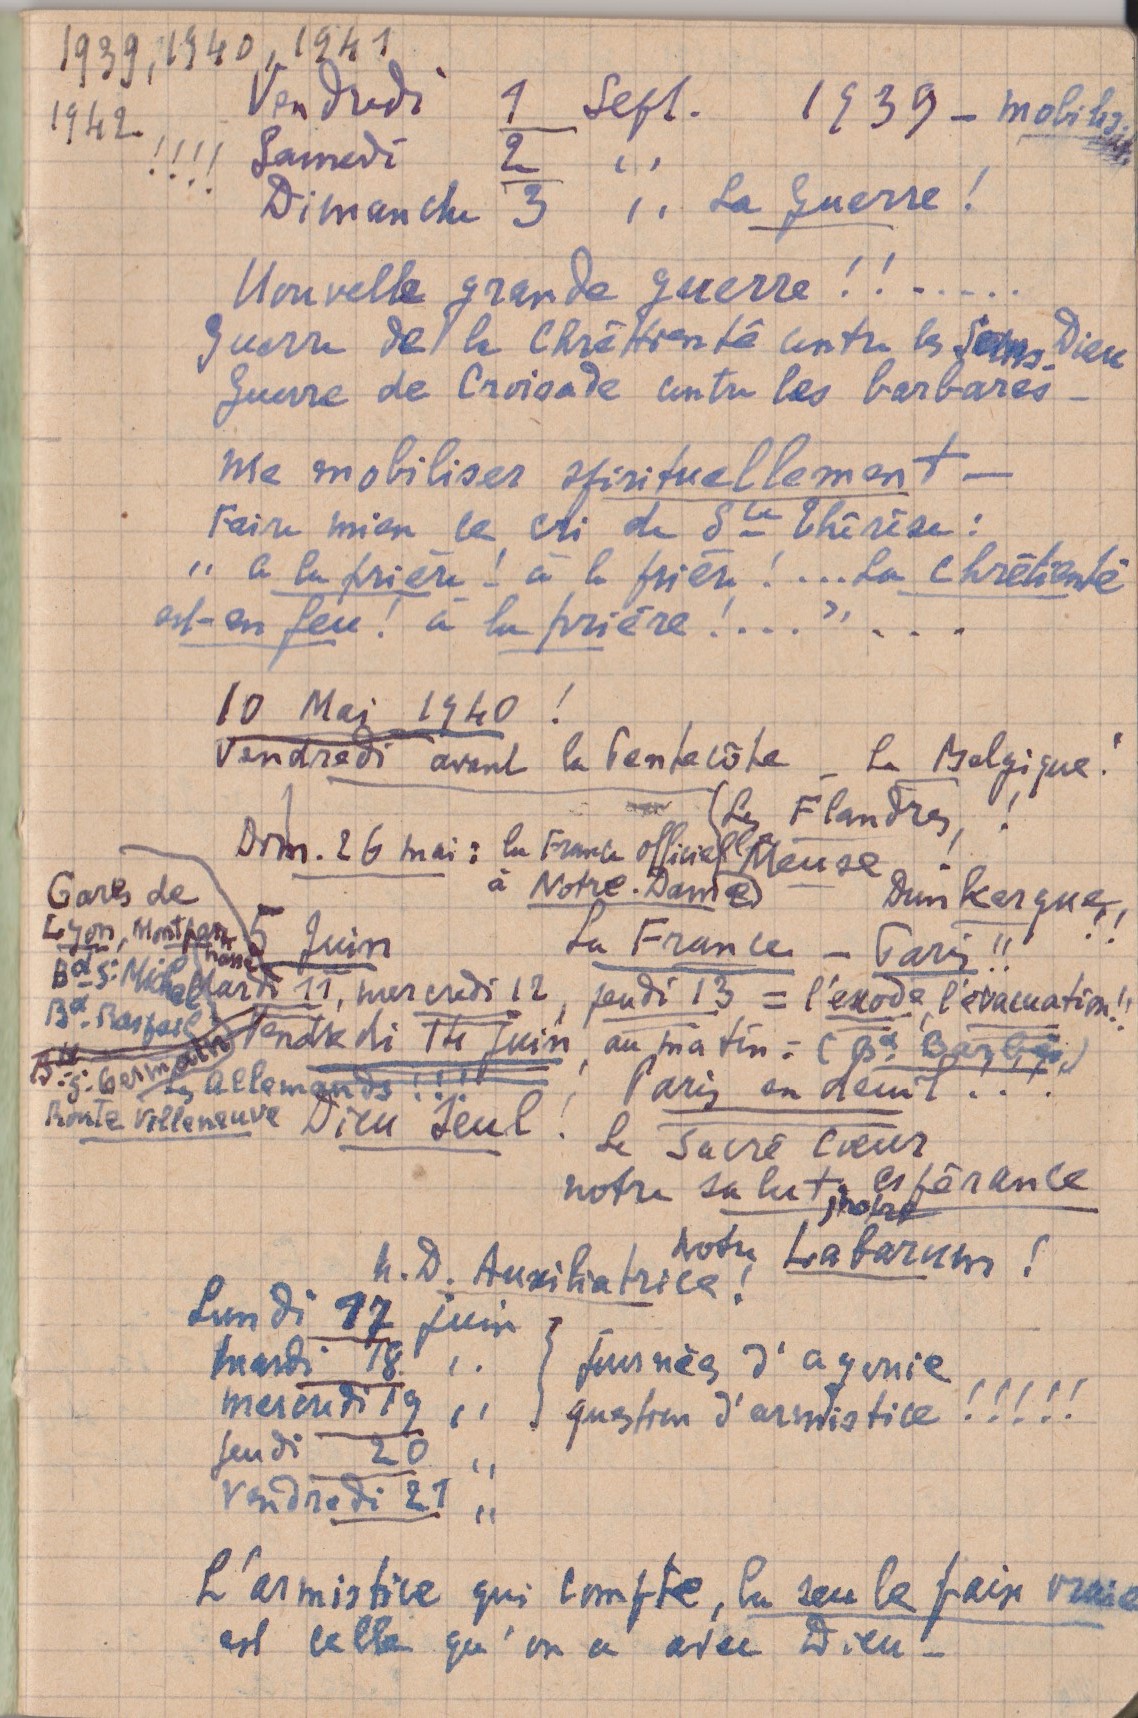 1939, 1940, 1941
1942 !!!!
Vendredi 1 Sept. 1939 – mobilis.
Samedi 2 ,,
Dimanche 3 ,, La Guerre !
Nouvelle grande guerre !! .....
Guerre de la Chrétienté contre les Sans-Dieu
Guerre de Croisade contre les barbares –
Me mobiliser spirituellement –
Faire mien le cri de Ste Thérèse :
,, à la prière ! à la prière ! ... La Chrétienté
est en feu ! à la prière ! .... " ....
10 Mai 1940 !
Vendredi avant la Pentecôte – La Belgique !
Les Flandres, !
Dim. 26 mai : la France officielle Meuse !
à Notre-Dame) Dunkerque, !!
Gares de
Lyon, Montparnasse
Bd St Michel
Bd Raspail
Bd St Germain
Porte Villeneuve
5 Juin La France – Paris !!
Mardi 11, mercredi 12, jeudi 13 = l'exode, l'évacuation !!
Vendredi 14 Juin, au matin = (Bd
Les Allemands !!!! ! Paris en deuil ....
Dieu Seul ! Le Sacré Cœur
notre salut, espérance
, notre
notre Labarum !
N. D. Auxiliatrice !
Lundi 17 juin
mardi 18 ,, journées d'agonie
mercredi 19 ,, question d'armistice !!!!!
jeudi 20 ,,
Vendredi 21 ,,
L'armistice qui compte, la seule paix vraie
est celle qu'on a avec Dieu –